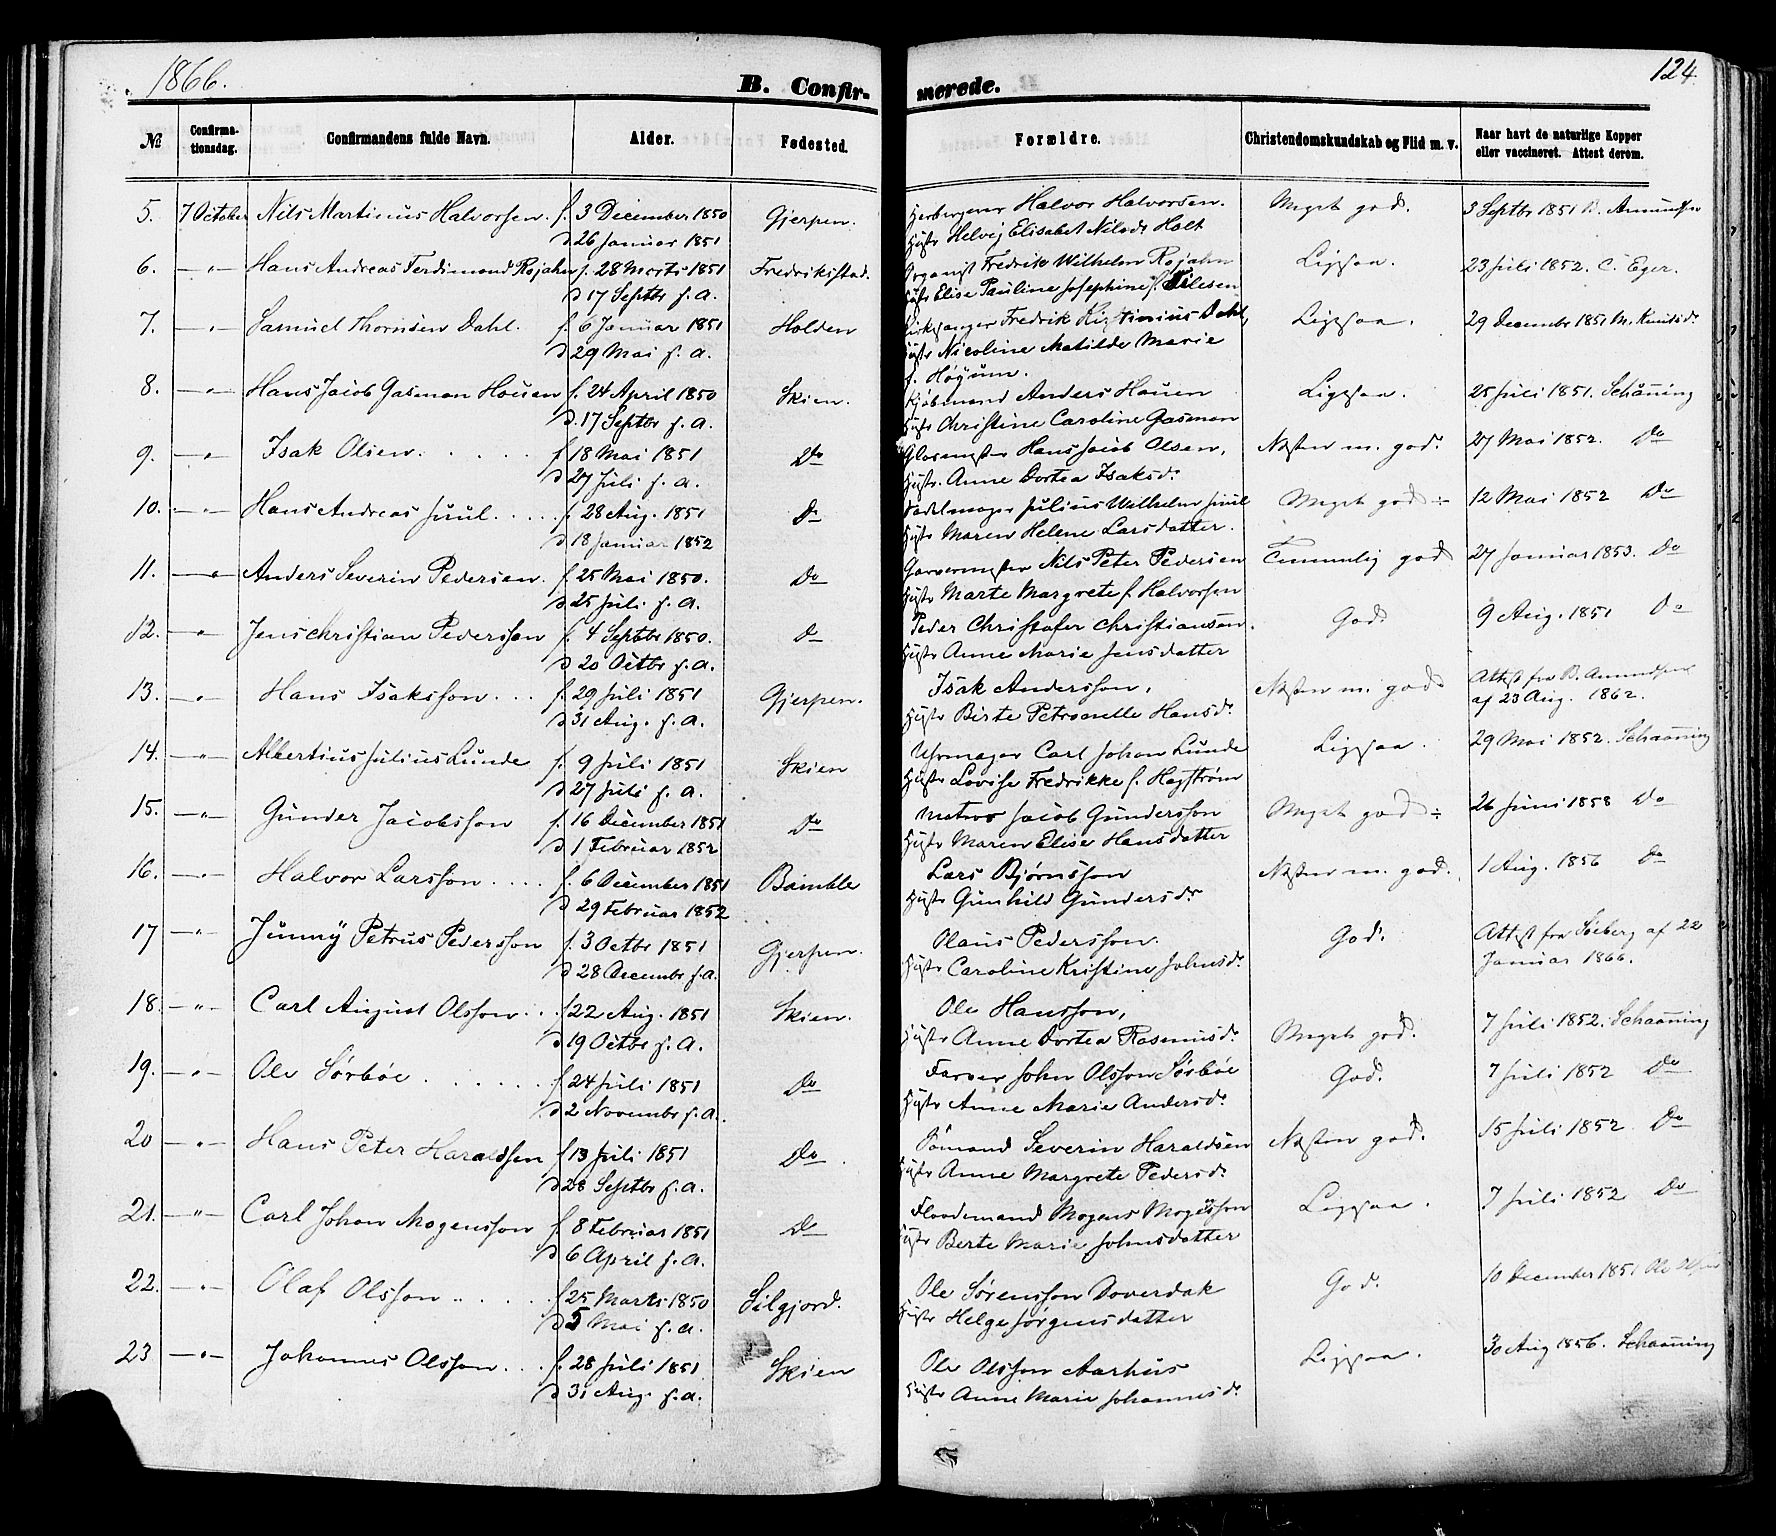 1866.
B. Confirmerede.
124.
№ Confirmationsdag. Confirmandens fulde Navn. Alder. Fødested. Forældre. Christendomskundskab og Flid m. v. Naar havt de naturlige Kopper eller vaccineret. Attest derom.
5. 7 October Nils Martinius Halvorsen. f. 3 December 1850 Gjerpen. Halvor Halvorsen. Meget god. 3 Septbr 1851 B. Amundsen
D 26 Januar 1851 Hustr Helvig Elisabet Nilsdr Holt
6. —"— Hans Andreas Ferdinand Rojahn f. 28 Marts 1851 Fredrikstad. Organist Fredrik Wilhelm Rojahn Ligesaa. 23 Juli 1852. C. Eger.
D 17 Septbr s. A. Hustr Elise Pauline Josephine f.
7. —"— Samuel Thornsen Dahl. f. 6 Januar 1851 Holden Kirkesanger Fredrik Kistinius Dahl, Ligesaa. 29 Decembr 1851 M. Knudsdr
D 29 Mai s. A. Hustr Nicoline Matilde Marie
f. Høyum.
8. —"— Hans Jacob Gasman Houen f. 24 April 1850 Skien. Kjøbmand Anders Houen Ligesaa. 25 Juli 1851. Schaaning
D. 17 Septbr s. A. Hustr Christine Caroline Gasman
9. —"— Isak Olsen. f 18 Mai 1851 Do Glasmester Hans Jacob Olsen, Næsten m. god. 27 Mai 1852. Do
D 27 Juli s. A. Hustr. Anne Dortea Isaksdr
10. —"— Hans Andreas Juul. f. 28 Aug. 1851 Do Sadelmager Julius Wilhelm Juul Meget god ÷ 12 Mai 1852 Do
D 18 Januar 1852 Hustr Maren Helene Larsdatter.
11. —"— Anders Severin Pedersen. f. 25 Mai 1850. Do Garvermester Nils Peter Pedersen Temmelig god 27 Januar 1853. Do
D 25 Juli s. A. Hustr Marte Margrete f. Halvorsen
12. —"— Jens Christian Pedersson f. 4 Septbr 1850. Do Peder Christofer Christiansen. God 9 Aug. 1851 Do
D 20 Octbr s. A. Hustr Anne Marie Jensdatter
13. —"— Hans Isaksson f. 29 Juli 1851 Gjerpen. Isak Andersson, Næsten m. god Attest fra B. Amundsen
D 31 Aug. s. A. Hustr Birte Petronelle Hansdr af 23 Aug. 1862.
14. —"— Albertius Julius Lunde f. 9 Juli 1851 Skien Uhrmager Carl Johan Lunde Ligesaa. 29 Mai 1852. Schaaning
D 27 Juli s. A. Hustr Lovise Fredrikke f. Hagstrøm
15. —"— Gunder Jacobsson f. 16 December 1851 Do Matros Jacob Gundersson Meget god ÷ 26 Juni 1858 Do
D 1 Februar 1852 Hustr Maren Elise Hansdatter
16. —"— Halvor Larsson f. 6 December 1851 Bamble Lars Bjørnsson Næsten m. god. 1 Aug. 1856 Do
D 29 Februar 1852 Hustr Gunhild Gundersdr
17 —"— Jenny Petrus Pedersson f. 3 Octbr 1851 Gjerpen. Olaus Pedersson. God. Attest fra Søeberg af 22
D 28 Decembr s. A. Hustr Caroline Kristine Johnsdr. Januar 1866.
18. —"— Carl August Olsson f 22 Aug. 1851 Skien. Ole Hansson, Meget god. 7 Juli 1852. Schaaning
D 19 Octbr s. A. Hustr Anne Dortea Rasmusdr
19. —"— Ole Sørbøe f. 24 Juli 1851 Do Farver John Olsson Sørbøe God. 7 Juli 1852 Do
D 2 Novembr s. A. Hustr Anne Marie Andersdr
20 —"— Hans Peter Haraldsen f 13 Juli 1851 Do Sømand Severin Haraldsen Næsten god. 15 Juli 1852 Do
D 28 Septbr s. A. Hustr Anne Margrete Pedersdr
21. —"— Carl Johan Mogensson f. 8 Februar 1851 Do Flaademand Mogens Mogesson Ligesaa. 7 Juli 1852 Do
D 6 April s. A. Hustr Berte Marie Johnsdatter
22. —"— Olaf Olsson f 25 Marts 1850 Silgjord. Ole Sørensson Doverdak God. 10 December 1851 Ole
D 5 Mai s. A. Hustr Helge Jørgensdatter
23 —"— Johannes Olsson f. 28 Juli 1851 Skien Ole Olsson Aarhus Ligesaa. 30 Aug 1856. Schaaning
D 31 Aug. s. A. Hustr Anne Marie Johannesdr